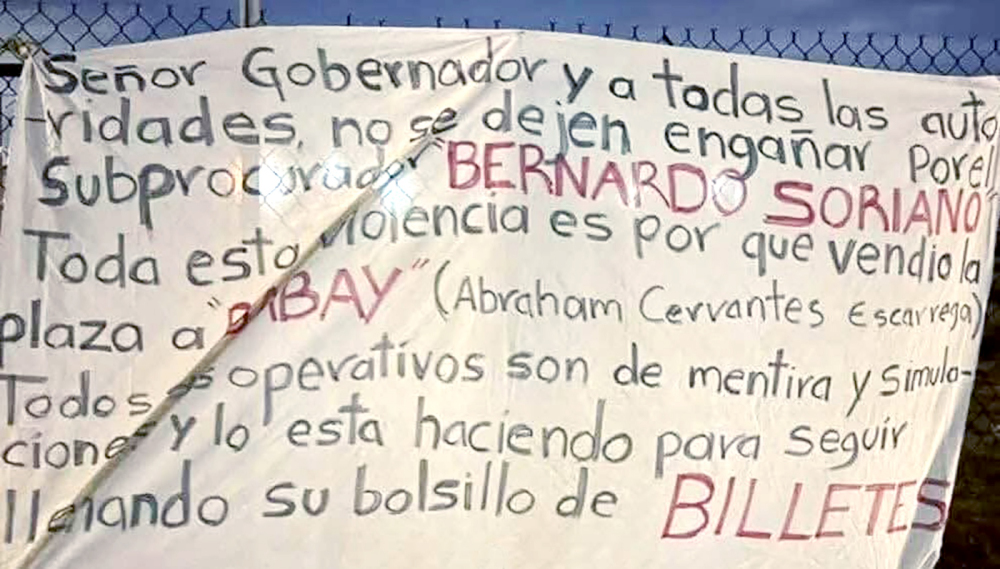 Señor Gobernador y a todas las auto
-ridades, no se dejen engañar Porel
Subprocurador "BERNARDO SORIANO"
Toda esta violencia es por que vendio la
plaza a " BAY" (Abraham Cervantes Escarrega)
Todos operativos son de mentira y Simula-
ciones y lo esta haciendo para seguir
llenando su bolsillo de BILLETES